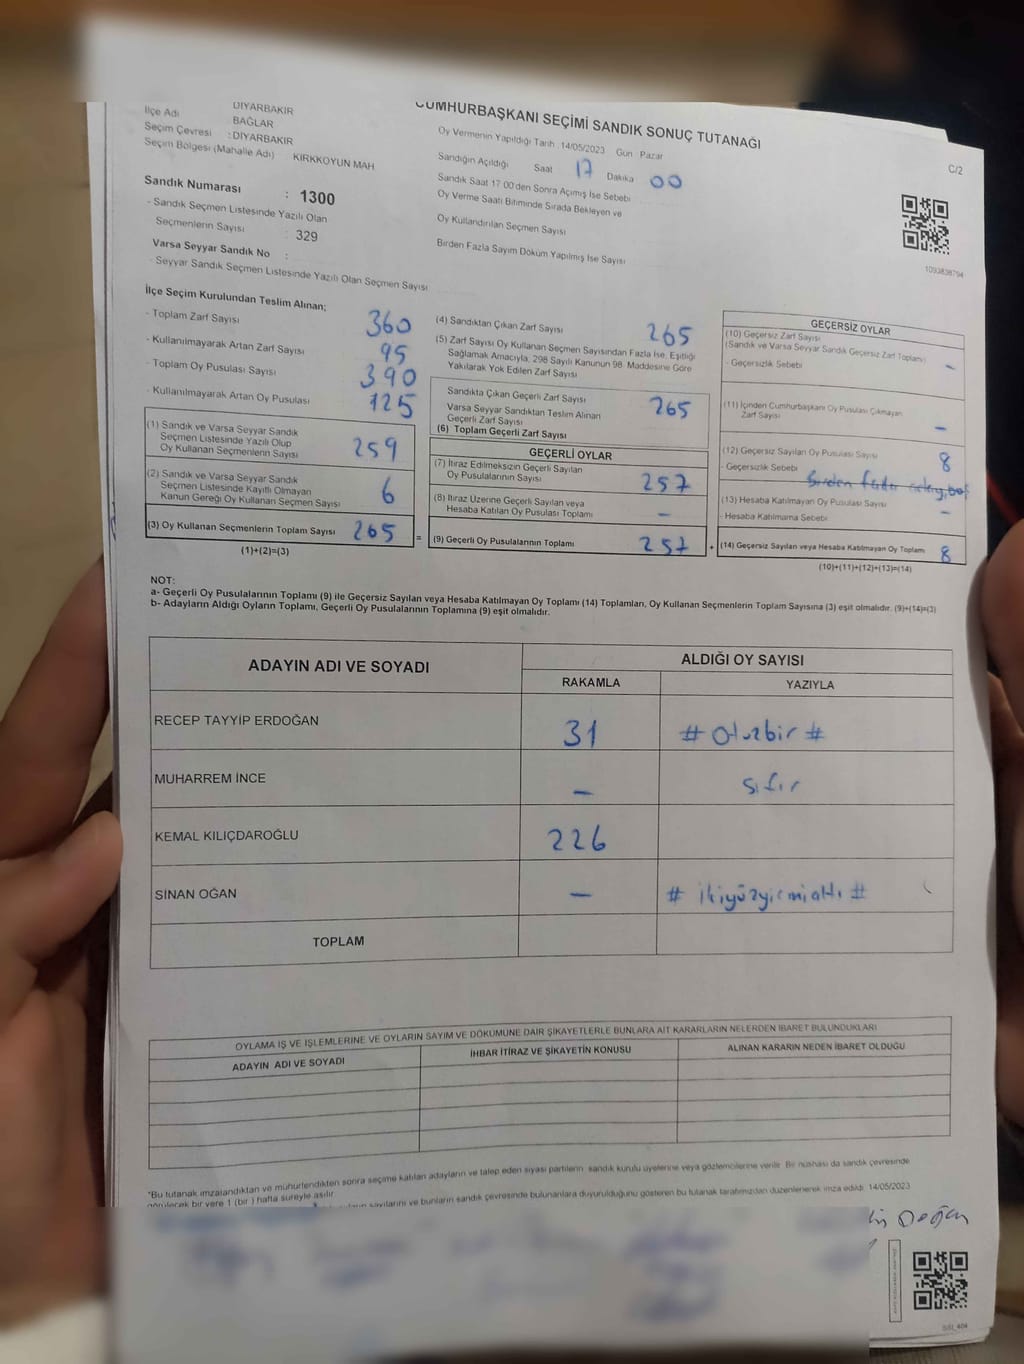 DİYARBAKIR
İlçe Adı BAĞLAR
Seçim Çevresi : DİYARBAKIR
Seçim Bölgesi (Mahalle Adı) KIRKKOYUN MAH
Sandık Numarası : 1300
- Sandık Seçmen Listesinde Yazılı Olan
Seçmenlerin Sayısı : 329
Varsa Seyyar Sandık No :
- Seyyar Sandık Seçmen Listesinde Yazılı Olan Seçmen Sayısı
CUMHURBAŞKANI SEÇİMİ SANDIK SONUÇ TUTANAĞI
C/2
Oy Vermenin Yapıldığı Tarih 14/05/2023 Gün Pazar
Sandığın Açıldığı Saat 17 Dakika 00
Sandık Saat 17 00'den Sonra Açımış İse Sebebi
Oy Verme Saati Bitiminde Sırada Bekleyen ve
Oy Kullandırılan Seçmen Sayısı
Birden Fazla Sayım Döküm Yapılmış İse Sayısı
1093838794
İlçe Seçim Kurulundan Teslim Alınan;
- Toplam Zarf Sayısı 360
- Kullanılmayarak Artan Zarf Sayısı 95
- Toplam Oy Pusulası Sayısı 390
- Kullanılmayarak Artan Oy Pusulası 125
(1) Sandık ve Varsa Seyyar Sandık
Seçmen Listesinde Yazılı Olup
Oy Kullanan Seçmenlerin Sayısı 259
(2) Sandık ve Varsa Seyyar Sandık
Seçmen Listesinde Kayıtlı Olmayan
Kanun Gereği Oy Kullanan Seçmen Sayısı 6
(3) Oy Kullanan Seçmenlerin Toplam Sayısı 265 =
(1)+(2)=(3)
(4) Sandıktan Çıkan Zarf Sayısı 265
(5) Zarf Sayısı Oy Kullanan Seçmen Sayısından Fazla İse, Eşitliği
Sağlamak Amacıyla, 298 Sayılı Kanunun 98. Maddesine Göre
Yakılarak Yok Edilen Zarf Sayısı
Sandıkta Çıkan Geçerli Zarf Sayısı 265
Varsa Seyyar Sandıktan Teslim Alınan
Geçerli Zarf Sayısı
(6) Toplam Geçerli Zarf Sayısı
GEÇERLİ OYLAR
(7) İtiraz Edilmeksizin Geçerli Sayılan
Oy Pusulalarının Sayısı 257
(8) İtiraz Üzerine Geçerli Sayılan veya
Hesaba Katılan Oy Pusulası Toplamı –
(9) Geçerli Oy Pusulalarının Toplamı 257 +
GEÇERSİZ OYLAR
(10) Geçersiz Zarf Sayısı
(Sandık ve Varsa Seyyar Sandık Geçersiz Zarf Toplamı) –
- Geçersizlik Sebebi
(11) İçinden Cumhurbaşkanı Oy Pusulası Çıkmayan
Zarf Sayısı –
(12) Geçersiz Sayılan Oy Pusulası Sayısı 8
- Geçersizlik Sebebi Birden fazla
(13) Hesaba Katılmayan Oy Pusulası Sayısı –
- Hesaba Katılmama Sebebi
(14) Geçersiz Sayılan veya Hesaba Katılmayan Oy Toplam 8
(10)+(11)+(12)+(13)=(14)
NOT:
a- Geçerli Oy Pusulalarının Toplamı (9) ile Geçersiz Sayılan veya Hesaba Katılmayan Oy Toplamı (14) Toplamları, Oy Kullanan Seçmenlerin Toplam Sayısına (3) eşit olmalıdır. (9)+(14)=(3)
b- Adayların Aldığı Oyların Toplamı, Geçerli Oy Pusulalarının Toplamına (9) eşit olmalıdır.
ADAYIN ADI VE SOYADI ALDIĞI OY SAYISI
RAKAMLA YAZIYLA
RECEP TAYYİP ERDOĞAN 31 # Otuzbir #
MUHARREM İNCE – sıfır
KEMAL KILIÇDAROĞLU 226
SİNAN OĞAN – # ikiyüzyirmialtı #
TOPLAM
OYLAMA İŞ VE İŞLEMLERİNE VE OYLARIN SAYIM VE DÖKÜMÜNE DAİR ŞİKAYETLERLE BUNLARA AİT KARARLARIN NELERDEN İBARET BULUNDUKLARI
ADAYIN ADI VE SOYADI İHBAR İTİRAZ VE ŞİKAYETİN KONUSU ALINAN KARARIN NEDEN İBARET OLDUĞU
*Bu tutanak imzalandıktan ve mühürlendikten sonra seçime katılan adayların ve talep eden siyasi partilerin sandık kurulu üyelerine veya gözlemcilerine verilir. Bir nüshası da sandık çevresinde
görülecek bir yere 1 (bir ) hafta süreyle asılır.
sayılarını ve bunların sandık çevresinde bulunanlara duyurulduğunu gösteren bu tutanak tarafımızdan düzenlenerek imza edildi. 14/05/2023
Doğan